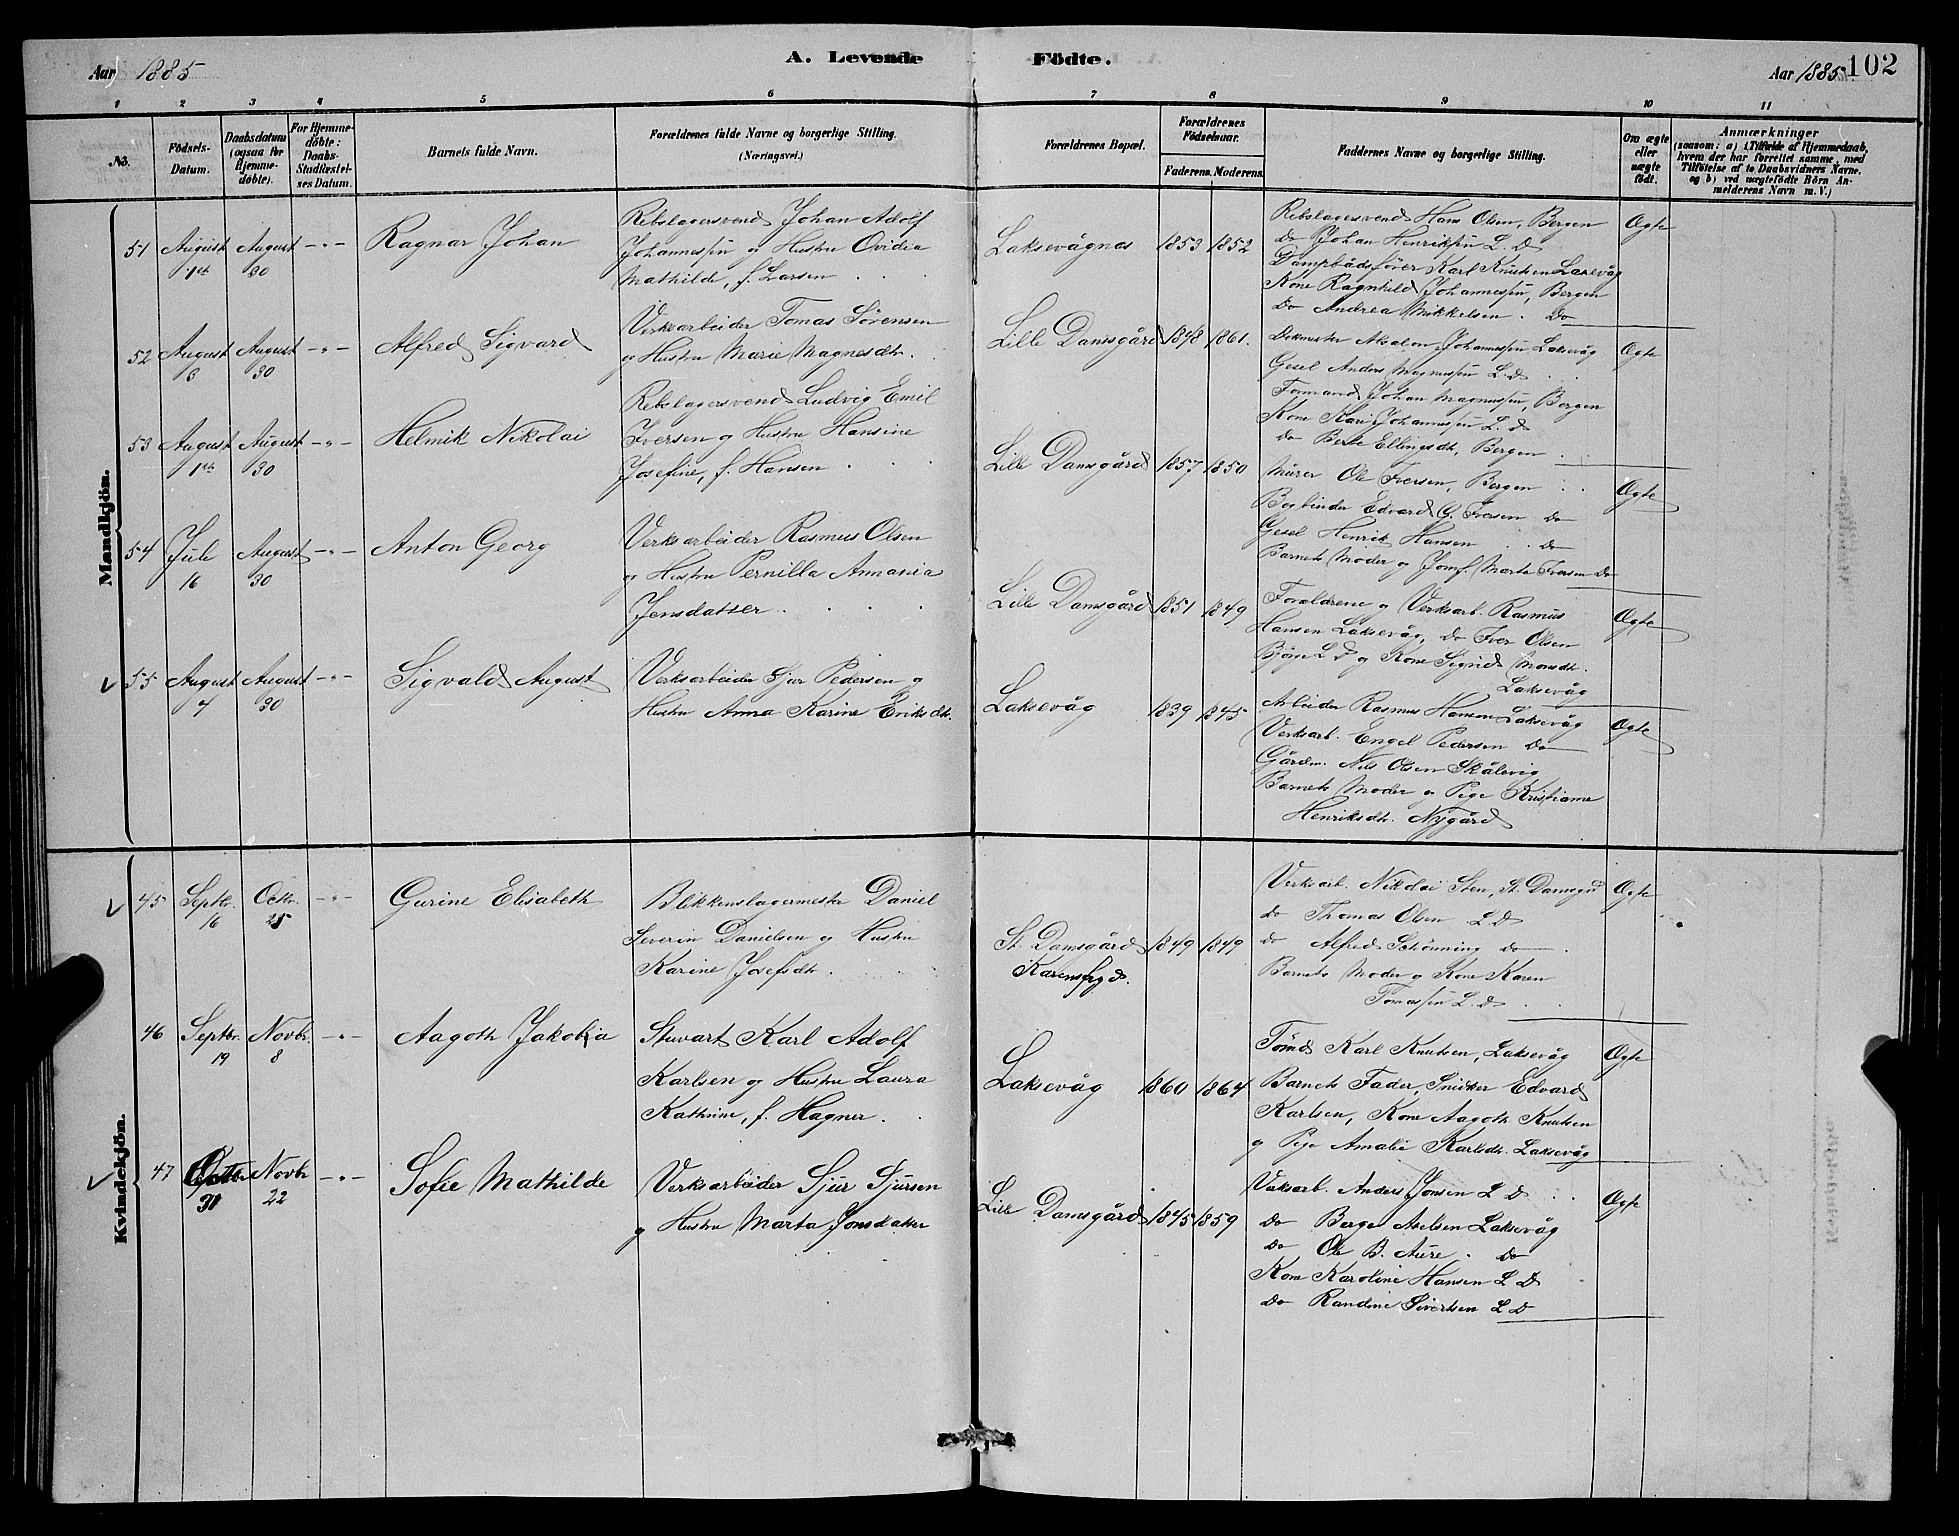 Aar 1885
A. Levende
Födte.
Aar 1885
102
1 2 3 4 5 6 7 8 9 10 11
No.
Födsels-
Datum.
Daabsdatum
(ogsaa for
Hjemme-
døbte).
For Hjemme-
døbte:
Daabs-
Stadfæstel-
ses Datum.
Barnets fulde Navn.
Forældrenes fulde Navne og borgerlige Stilling.
(Næringsvei.)
Forældrenes Bopæl.
Forældrenes
Födselsaar.
Faderens. Moderens.
Faddernes Navne og borgerlige Stilling.
Om ægte
eller
uægte
født.
Anmærkninger
(saasom: a) i Tilfælde af Hjemmedaab,
hvem der har forrettet samme, med
Tilføielse af to Daabsvidners Navne,
og b) ved uægtefödte Börn An-
melderens Navn m. V.)
Mandkjön.
51 August 1ste August 30 -"- Ragnar Johan
Rebslagersvend Johan Adolf
Johannessen og Hustru Ovidia
Mathilde, f. Larsen
Laksevågnæs 1853 1852
Rebslagersvend Hans Olsen, Bergen
Do Johan Henriksen L. D
Dampbådsfører Karl Knutsen Laksevåg
Kone Ragnhild Johannessen, Bergen
Do Andrea Mikkelsen. Do
Ægte
52 August 3 August 30 -"- Alfred Sigvard
Verksarbeider Tomas Sörensen
og Hustru Marie Magnesdtr.
Lille Damsgård 1848 1861.
Dokmester Absalon Johannessen Laksevåg
Gesel Anders Magnussen L. D
Formand Johan Magnussen, Bergen
Kone Kari Johannessen L. D
do Berte Ellingsdtr, Bergen
Ægte
53 August 1ste August 30 -"- Helmik Nikolai
Rebslagersvend Ludvig Emil
Iversen og Hustru Hansine
Josefine, f. Hansen
Lille Damsgård 1857 1850
Murer Ole Iversen, Bergen
Bogbinder Edvard G. Iversen do
Gesel Henrik Hansen do
Barnets Moder og Jomf. Marte Iversen Do
Ægte
54 Juli 16 August 30 -"- Anton Georg
Verksarbeider Rasmus Olsen
og Hustru Pernilla Annania
Jensdatter
Lille Damsgård 1851 1849
Forældrene og Verksarb. Rasmus
Hansen Laksevåg, do Iver Olsen
Björge L D og Kone Sigrid Monsdtr.
Laksevåg
Ægte
55 August 4 August 30 -"- Sigvald August
Verksarbeider Sjur Pedersen og
Hustru Anna Karine Eriksdtr.
Laksevåg 1839 1845
Arbeider Rasmus Hansen Laksevåg
Verksarb. Engel Pedersen do
Gårdm. Nils Olsen Skålevig
Barnets Moder og Pige Kristiane
Henriksdtr. Nygård
Ægte
Kvindekjön.
45 Septbr. 16 Octbr. 25 -"- Gurine Elisabeth
Blikkenslagermester Daniel
Severin Danielsen og Hustru
Karine Josefsdtr.
St. Damsgård 1849 1849
Verksarb. Nikolai Sten, St. Damsgrd
do Thomas Olsen L D
do Alfred Schønning do
Barnets Moder og Kone Karen
Tomassen L. D
Ægte
46 Septbr. 19 Novbr. 8 -"- Aagoth Jakobia
Stuvart Karl Adolf
Karlsen og Hustru Laura
Kathrine, f. Hagner.
Laksevåg 1860 1864
Tømd Karl Knutsen, Laksevåg
Barnets Fader, Snidker Edvard
Karlsen, Kone Aagoth Knutsen
og Pige Amalie Karlsdtr. Laksevåg
Ægte
47 Octbr 31 Novbr 22 -"- Sofie Mathilde
Verksarbeider Sjur Sjursen
og Hustru Marta Jonsdatter
Lille Damsgård 1845 1859
Verksarb. Anders Jonsen L D
do Berge Axelsen Laksevåg
do Ole B. Aure. do
Kone Karoline Hansen L D
do Randine Sivertsen L D
Ægte